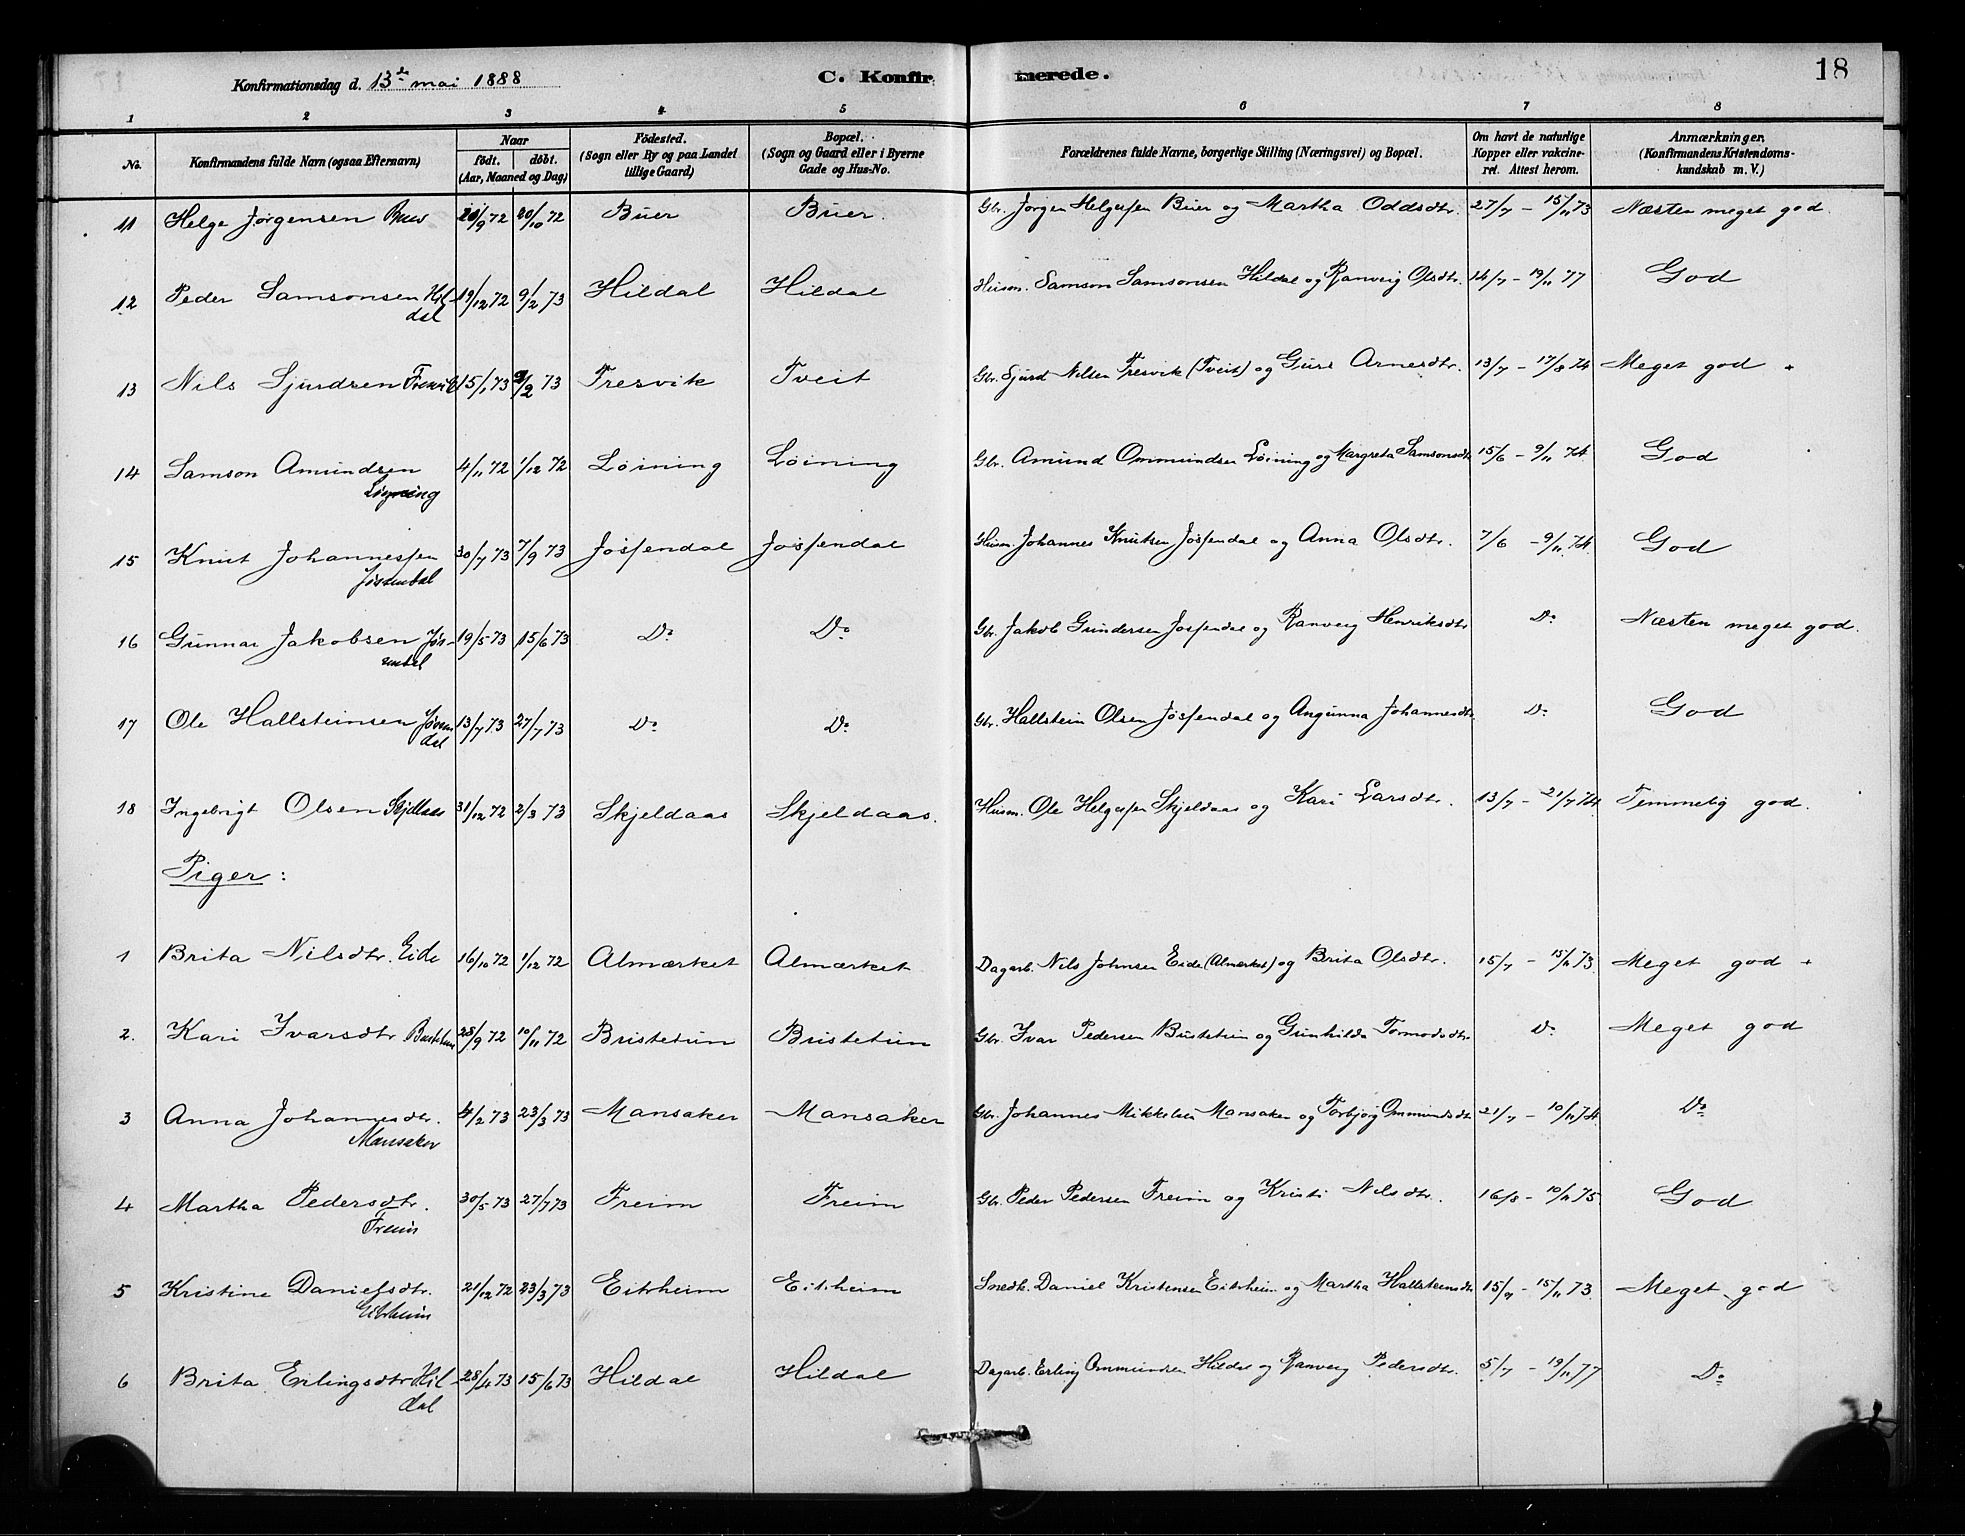 Konfirmationsdag d. 13de mai 1888 C. Konfirmerede. 18
1 2 3 4 5 6 7 8
No. Konfirmandens fulde Navn (ogsaa Efternavn) Naar födt. döbt. (Aar, Maaned og Dag) Födested. (Sogn eller By og paa Landet tillige Gaard) Bopæl. (Sogn og Gaard eller i Byerne Gade og Hus-No. Forældrenes fulde Navne, borgerlige Stilling (Næringsvei) og Bopæl. Om havt de naturlige Kopper eller vakcineret. Attest herom. Anmærkninger. (Konfirmandens Kristendomskundskab m. V.)
11 Helge Jørgensen Buer /9 72 20/10 72 Buer Buer. Gbr. Jørgen Helgesen Buer og Martha Oddsdtr. 27/7 - 15/11 73 Næsten meget god.
12 Peder Samsonsen Hildal 19/12 72 9/2 73 Hildal Hildal Husm. Samson Samsonsen Hildal og Ranveig Olsdtr. 14/7 - 19/11 77 God
13 Nils Sjurdsen Fresvik 15/1 73 /2 73 Fresvik Tveit Gbr. Sjurd Nilsen Fresvik (Tveit) og Guro Arnesdtr. 13/7 - 17/8 74 Meget god +
14 Samson Amundsen Løyning 4/11 72 1/12 72 Löining Löining Gbr. Amund Ommundsen Löining og Margreta Samsonsdtr 15/6 - 9/11 74 God
15 Knut Johannessen Jøssendal 30/7 73 7/9 73 Jössendal Jössendal Husm. Johannes Knutsen Jössendal og Anna Olsdtr. 7/6 - 9/11 74 God
16 Gunnar Jakobsen Jøssendal 19/5 73 15/6 73 Do Do Gbr. Jakob Gundersen Jössendal og Ranveig Henriksdtr Do Næsten meget god.
17 Ole Hallsteinsen Jøssendal 13/7 73 27/7 73 Do Do Gbr. Hallstein Olsen Jössendal og Angunna Johannesdtr Do God
18 Ingebrigt Olsen Skjeldaas 31/12 72 2/3 73 Skjeldaas Skjeldaas. Husm. Ole Helgesen Skjeldaas og Kari Larsdtr. 13/7 - 21/7 74. Temmelig god.
Piger:
1 Brita Nilsdtr. Eide 16/10 72 1/12 72 Almærket Almærket Dagarb. Nils Johnsen Eide (Almærket) og Brita Olsdtr. 15/7 - 15/11 73. Meget god +
2. Kari Ivarsdtr Bustetun 28/9 72 10/11 72 Bustetun Bustetun Gbr. Ivar Pedersen Bustetun og Gunhilda Tormodsdtr. Do Meget god
3 Anna Johannesdtr. Mansaker 4/2 73 23/3 73 Mansaker Mansaker Gbr. Johannes Mikkelsen Mansaker og Torbjørg Ommundsdtr 21/7 - 10/11 74. Do
4 Martha Pedersdtr. Freim 30/5 73 27/7 73 Freim Freim Gbr. Peder Pedersen Freim og Kristi Nilsdtr. 16/8 - 10/11 75. God
5 Kristine Danielsdtr. Eitrheim 21/12 72 23/3 73 Eitrheim Eitrheim Snedk. Daniel Kristensen Eitrheim og Martha Hallsteinsdtr 15/7 - 15/11 73. Meget god
6 Brita Erlingsdtr Hildal 28/4 73 15/6 73 Hildal Hildal Dagarb. Erling Ommundsen Hildal og Ranveig Pedersdtr. 5/7 - 19/11 77 Do